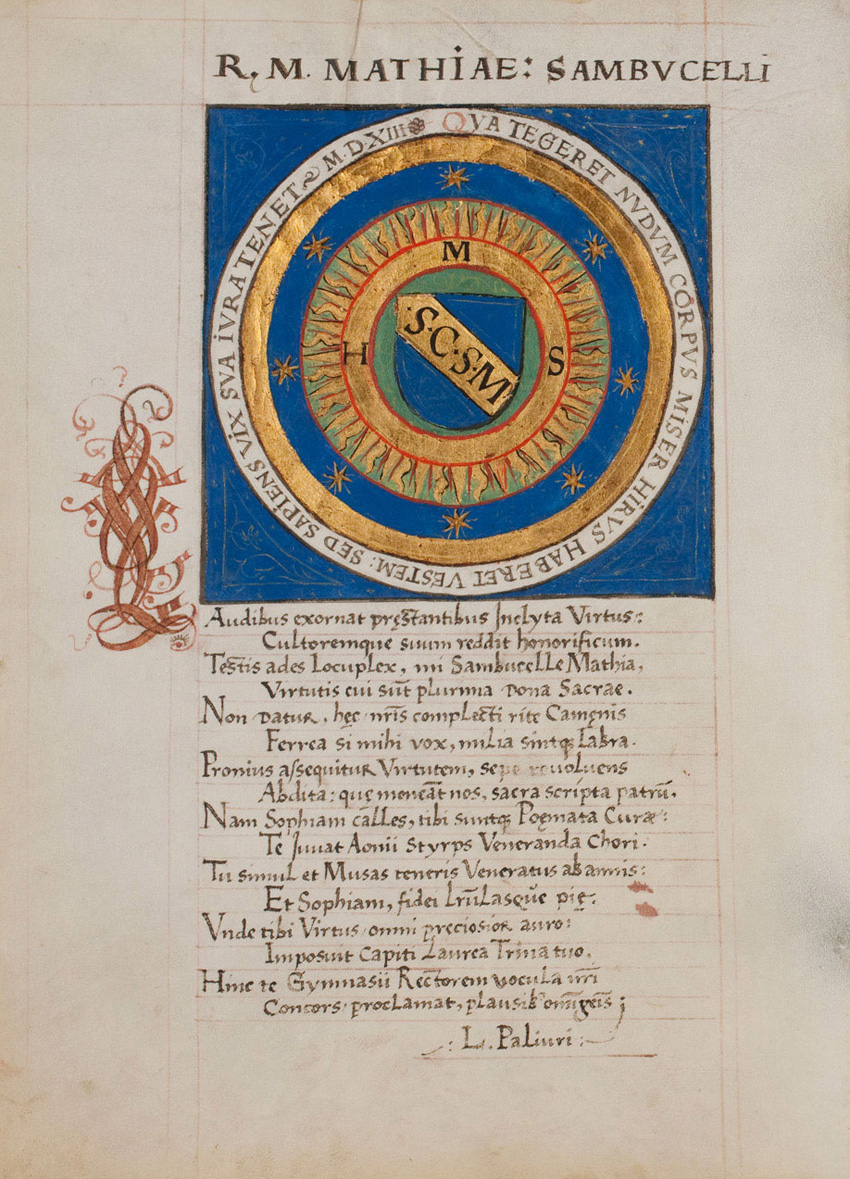 R. M. MATHIAE: SAMBVCELLI
QVA TEGERET NVDVM CORPVS MISER HIRVS HABERET VESTEM: SED SAPIENS VIX SVA IVRA TENET M·D·XIII
M
H
S
S·C·S·M
LAudibus exornat pręstantibus Inclyta Virtus:
Cultoremque suum reddit honorificum.
Testis ades Locuplex, mi Sambucelle Mathia,
Virtutis cui sūt plurima dona Sacrae.
Non datur, hęc nr̄is complecti rite Camęnis
Ferrea si mihi vox, milia sintq; labra.
Pronius assequitur Virtutem, sepe reuoluens
Abdita: quę moneāt nos, sacra scripta patrū.
Nam Sophiam calles, tibi suntq; Poęmata Curae:
Te Juuat Aonii Styrps Veneranda Chori.
Tu simul et Musas teneris Veneratus ab annis:
Et Sophiam, fidei lr̄ulasq̄ue pię:
Vnde tibi Virtus omni preciosior auro:
Imposuit Capiti Laurea Trina tuo.
Hinc te Gymnasii Rectorem vocula nr̄i
Concors proclamat, plausib
L. Paliuri